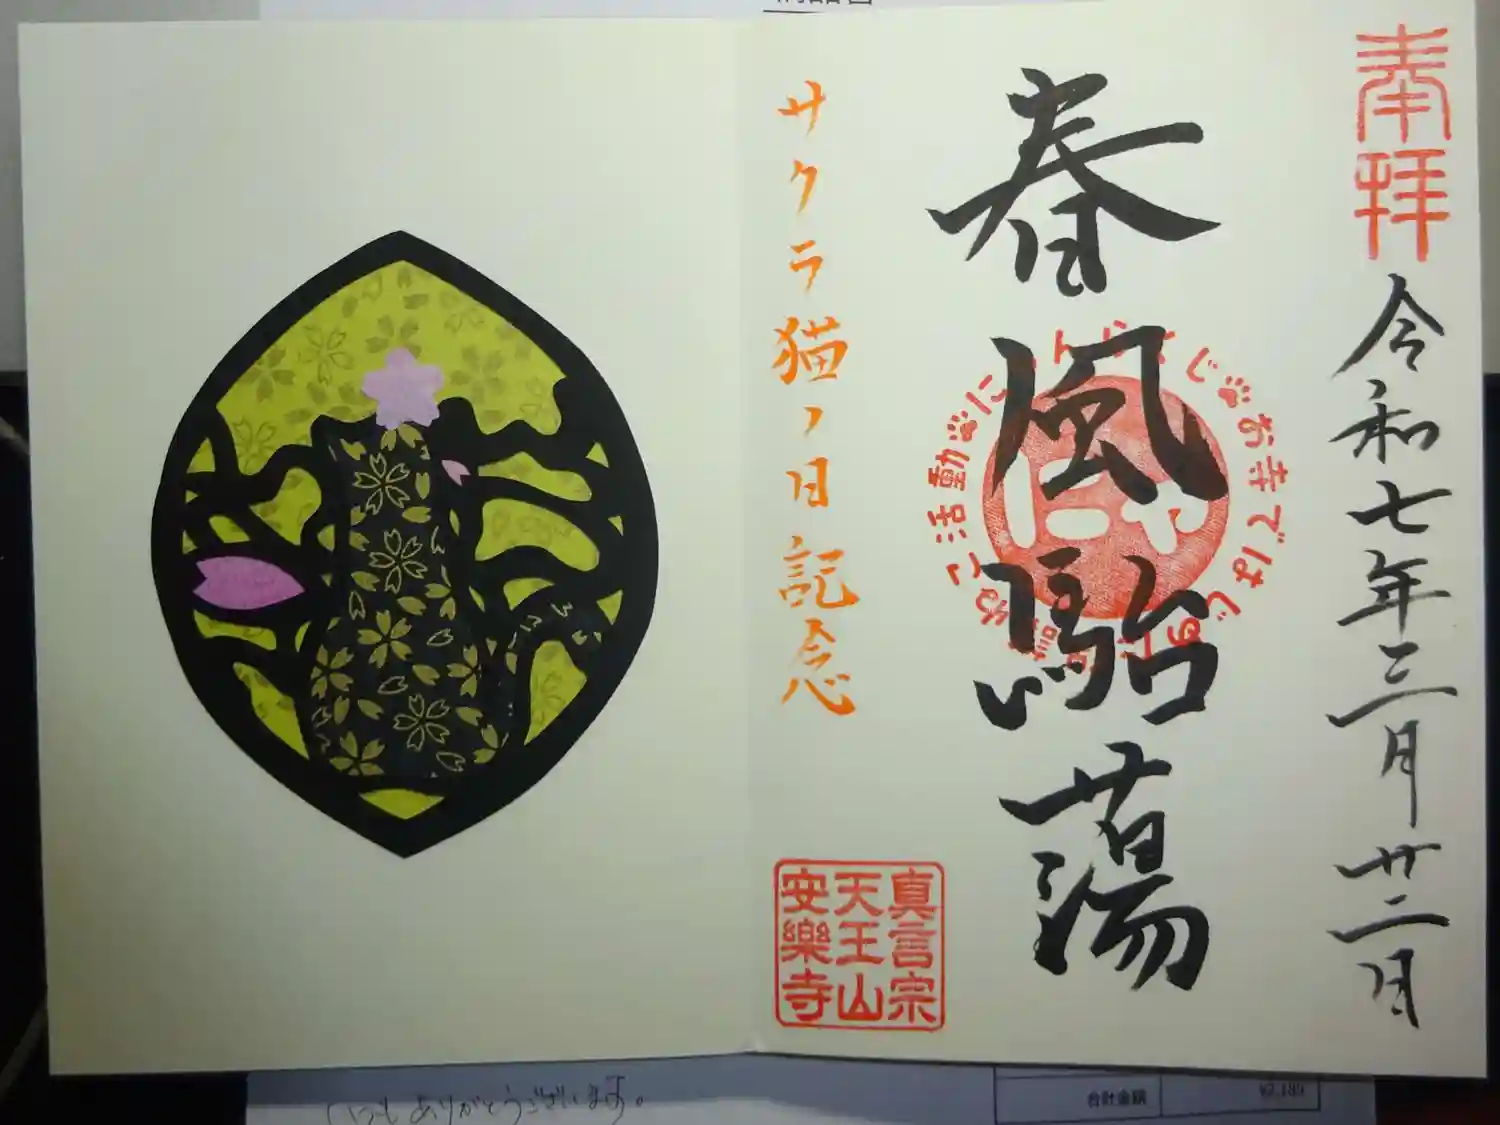 奉拝
令和七年三月廿二日
春風駘蕩
サクラ猫ノ日記念
真言宗
天王山
安樂寺
いつもありがとうございます。
合計金額